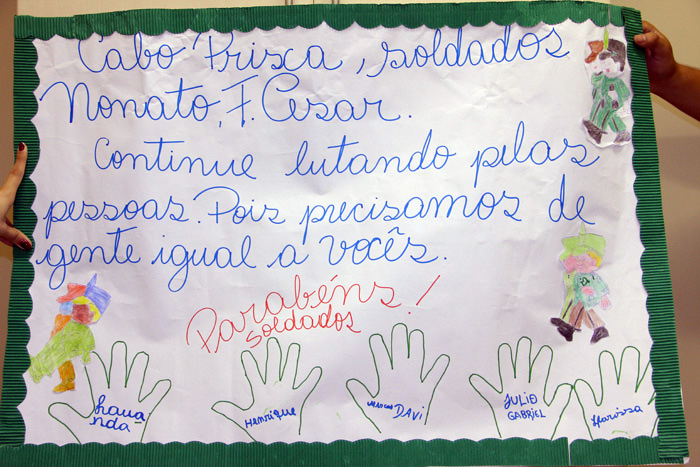 Cabo Prisca, soldados
Nonato, F. Cesar.
Continue lutando pelas
pessoas. Pois precisamos de
gente igual a vocês.
Parabéns!
soldados
Laua
nda
Henrique
Marcos DAVI
JULIO
GABRIEL
Larissa